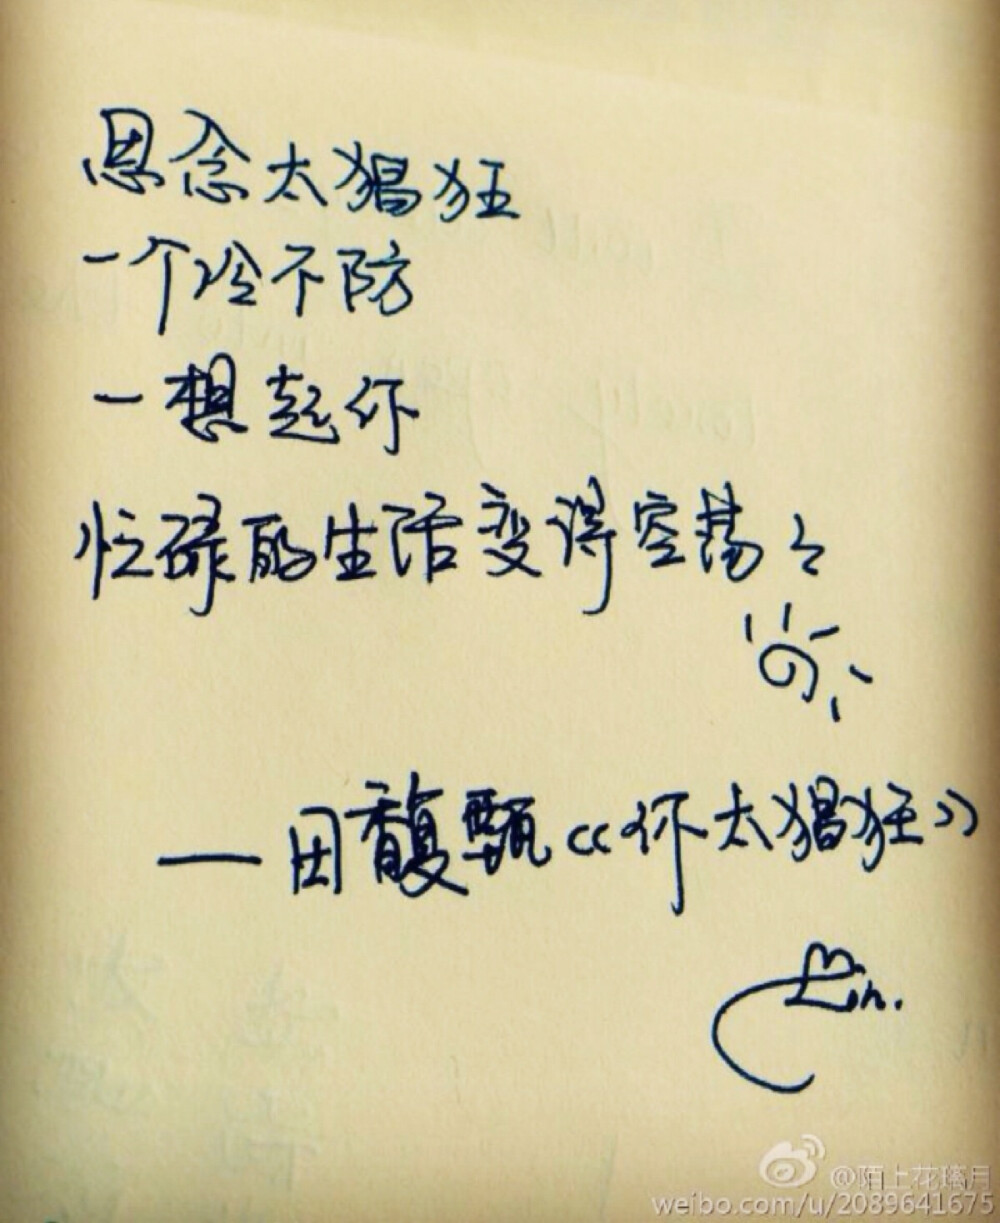 思念太猖狂
一个冷不防
一想起你
忙碌的生活变得空荡々
——田馥甄《你太猖狂》
Lin.
@陌上花璃月
weibo.com/u/2089641675